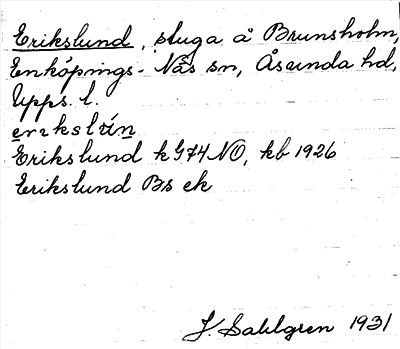 Erikslund, stuga å Brunsholm,
Enköpings-Näs sn, Åsunda hd,
Upps. l.
Erikslund k G74 NO, kb 1926
Erikslund Bs ek
J. Sahlgren 1931